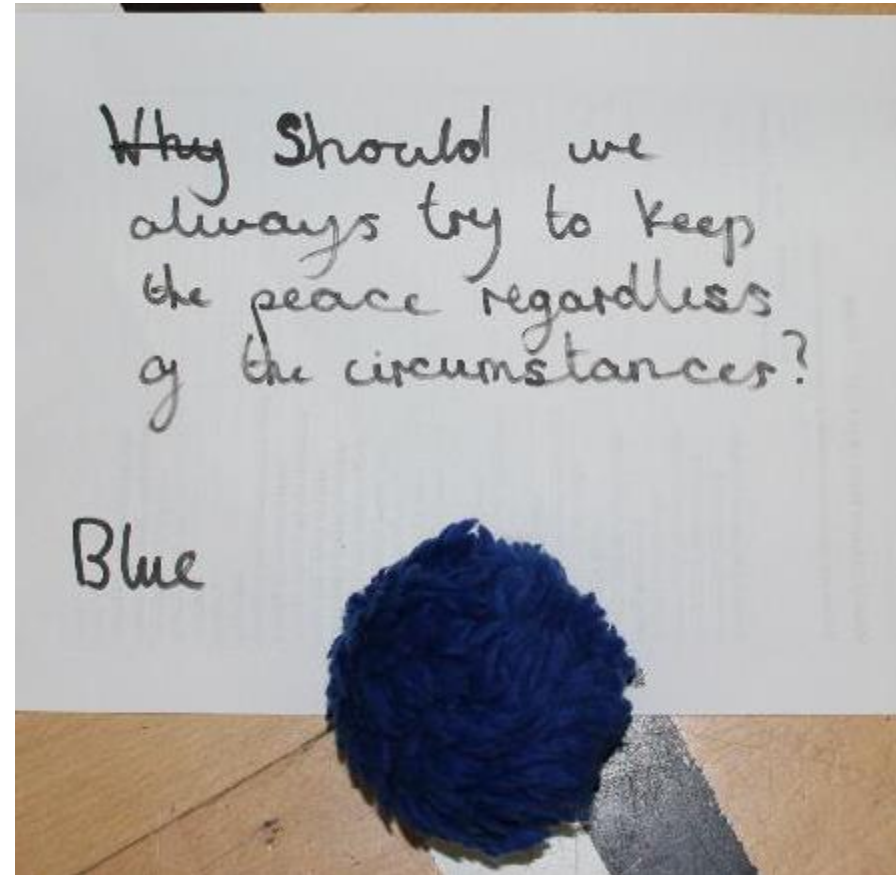 Why Should we
always try to keep
the peace regardless
of the circumstances?
Blue